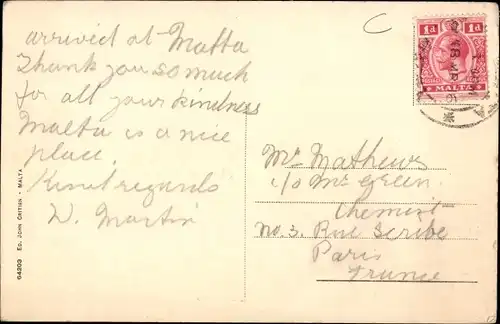 arrived at Malta
Thank you so much
for all your kindness
Malta is a nice
place.
Kind regards
W. Martin
1d 1d
MALTA
Mr Mathews
c/o Mr Green
Chemist
No. 3. Rue Scribe
Paris
France
64203 ED. JOHN CRITIEN - MALTA